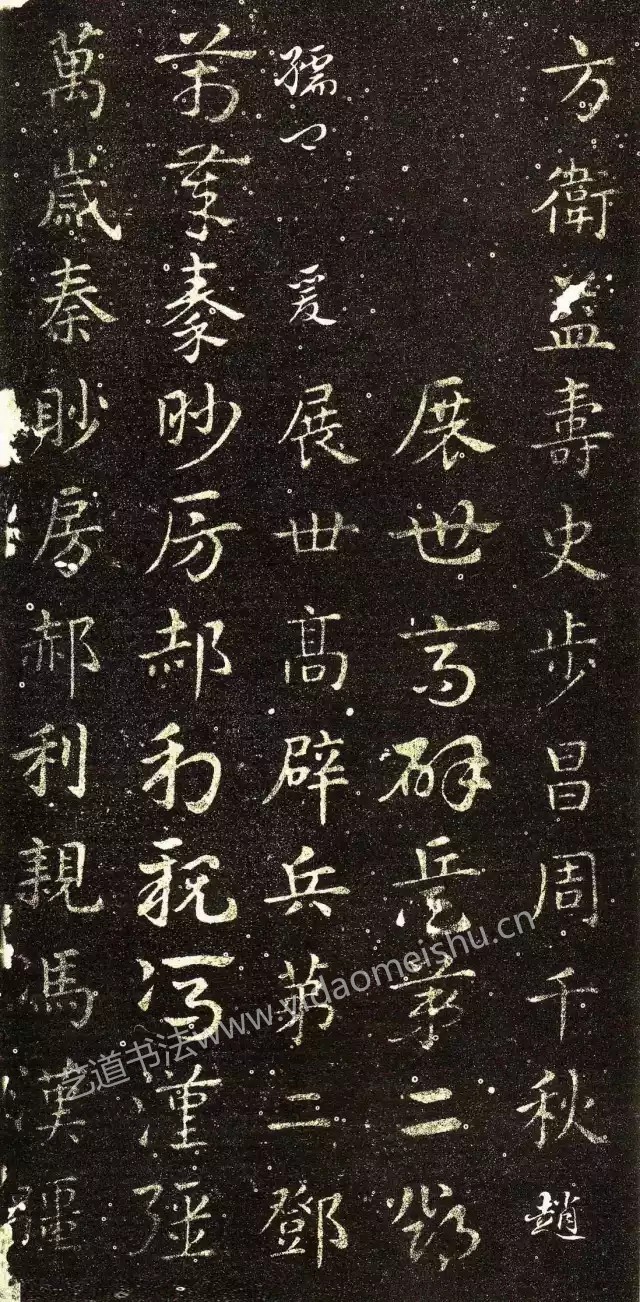 方衛益壽史步昌周千秋趙
展世高辟兵第二鄧
孺卿爰展世高辟兵苐二鄧
萬歲秦眇房郝利親馮漢彊
萬歲秦眇房郝利親馮漢彊
艺道书法www.yidaomeishu.cn